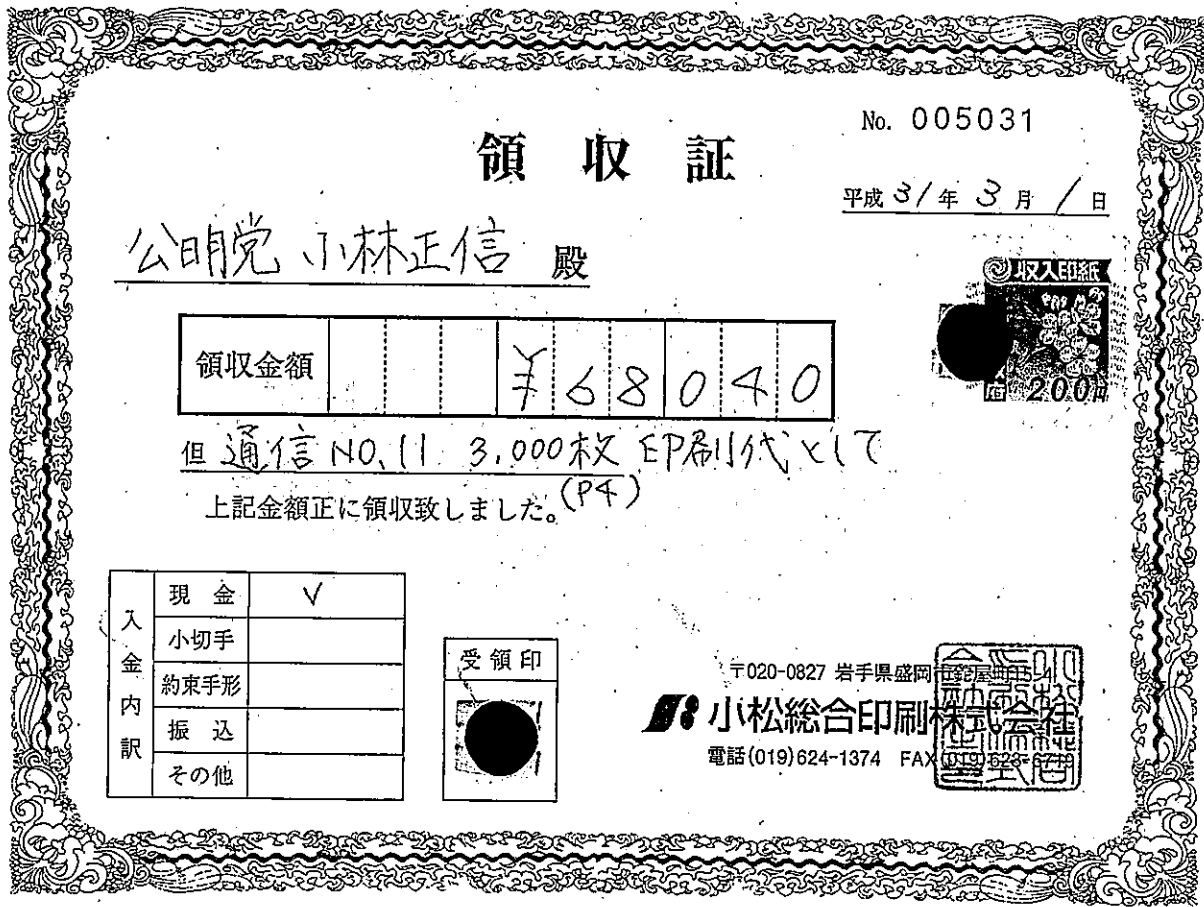 No. 005031
領収証
平成 31年 3月 1日
公明党 小林正信 殿
収入印紙
200円
領収金額 ¥68040
但 通信 NO.11 3,000枚 印刷代として
(P4)
上記金額正に領収致しました。
入金内訳
現金 ✓
小切手
約束手形
振込
その他
受領印
〒020-0827 岩手県盛岡市鉈屋町15-4
小松総合印刷株式会社
電話(019)624-1374 FAX(019)623-6719